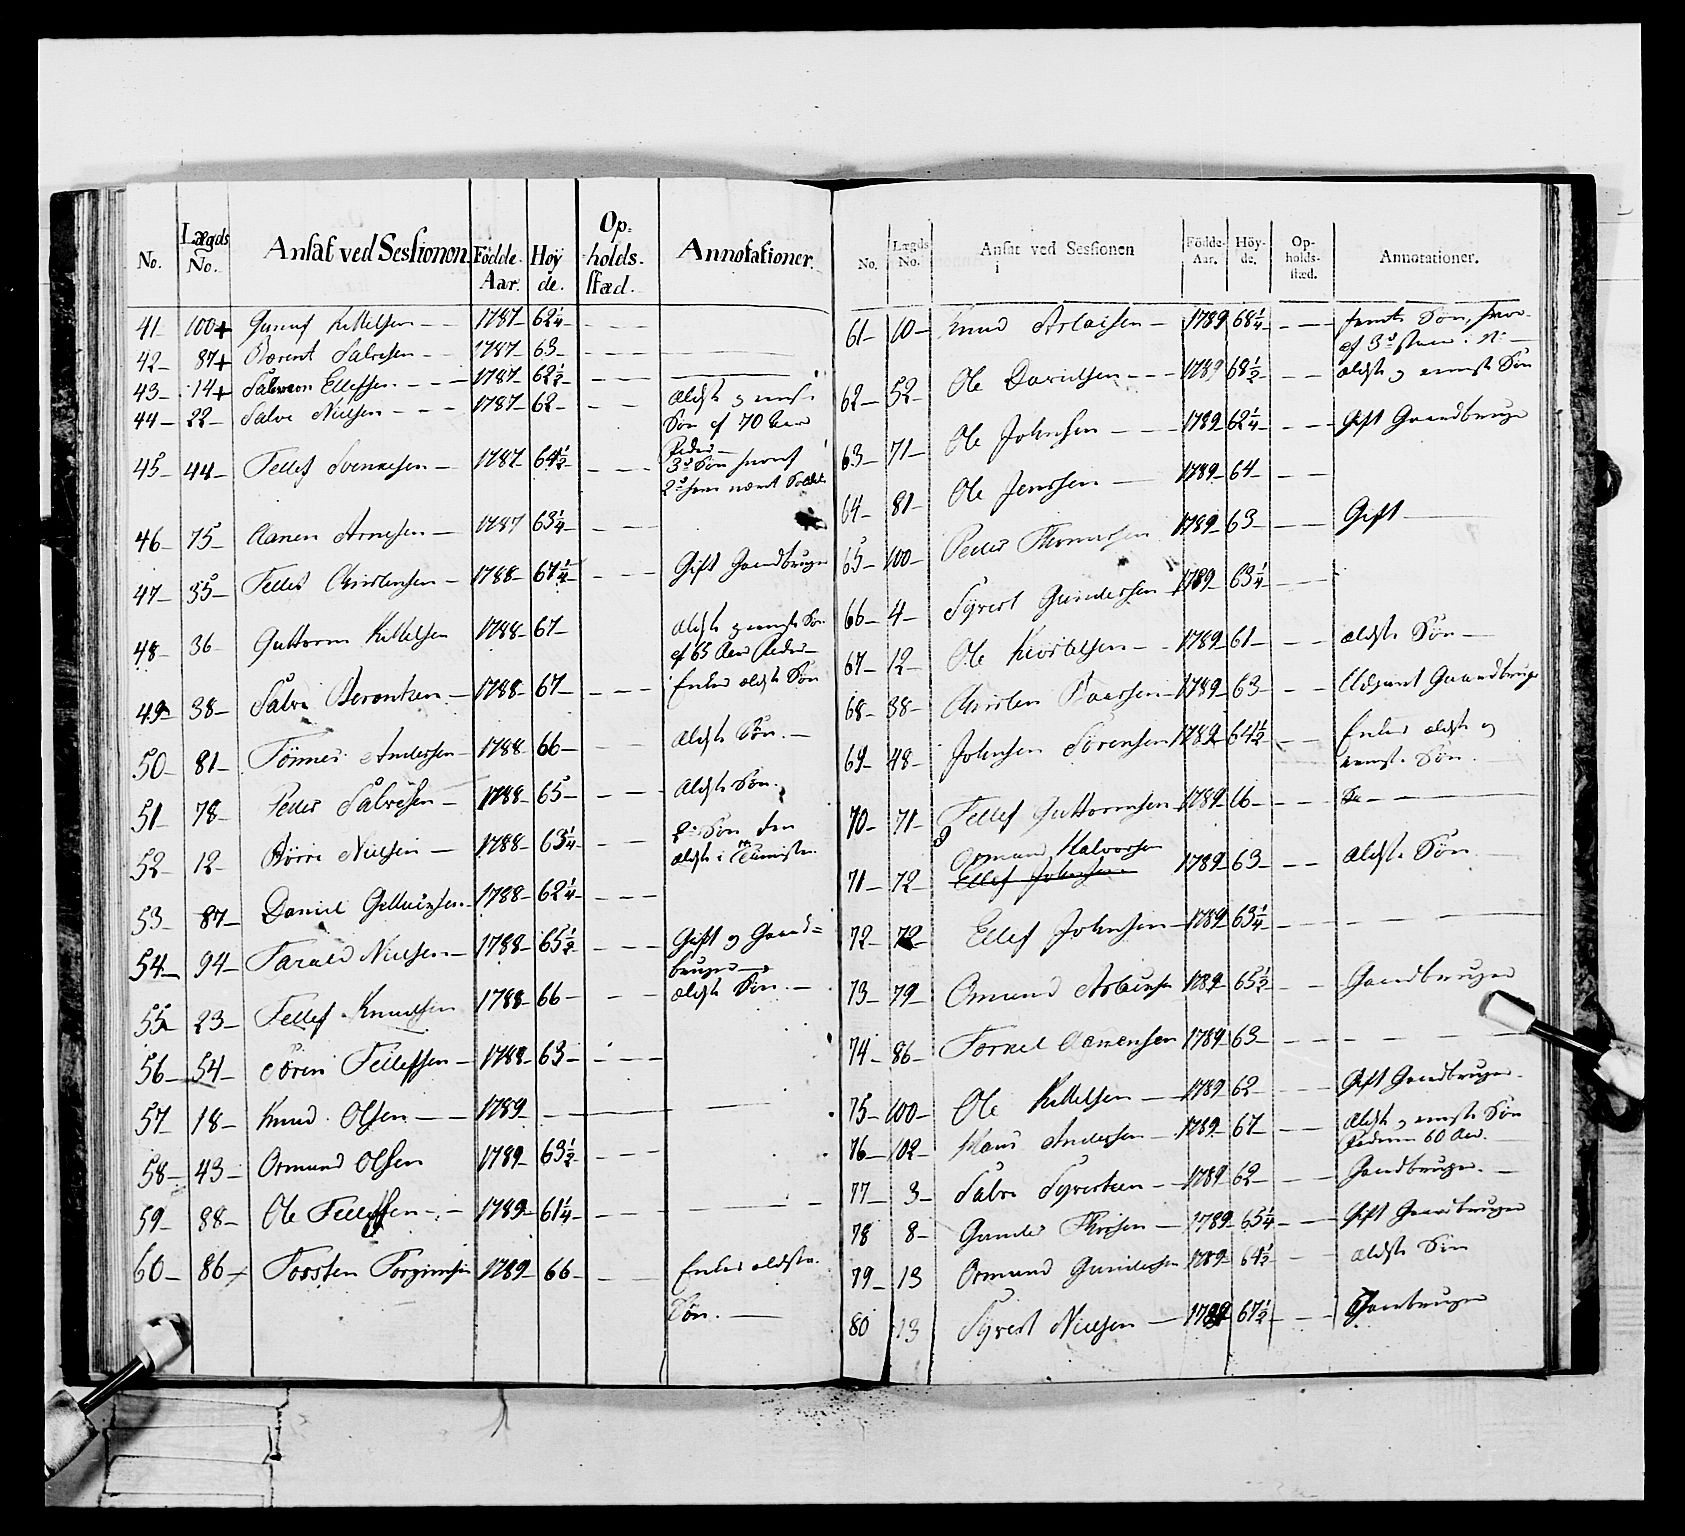 No. Lægds No. Ansat ved Sessionen Födde-Aar. Höyde. Op=holds-stæd. Annotationer.
41 100+ Gunuf Kittelsen 1787 62 1/4
42 87+ Berent Salvesen 1787 63
43 14+ Ellefsen 1787 62 1/2
44 22 Salve Nielsen 1787 62 ældste og
Søn af 70 Aar
45 44 Tellef Svennesen 1787 64 1/2 3d Søn
2d
46 75 Aanen Arnesen 1787 63 1/4
47 35 Tellef Christensen 1788 67 1/4 Gift Gaardbruger
48 36 Guttorm Kittelsen 1788 67 ældste og eeneste Søn
af 65 Aar
49 38 Salve Berentsen 1788 67 Enkes ældste Søn
50 81 Tönnes Andersen 1788 66 ældste Søn.
51 78 Peder Salvesen 1788 65 ældste Søn.
52 12 Börre Nielsen 1788 63 1/4 2d Søn den
ældste i
53 87 Daniel 1788 62 1/4
54 94 Tarald Nielsen 1788 65 1/2 Gift og Gaard=
bruger
55 23 Tellef Knudsen 1788 66 ældste Søn.
56 54 Sören Tellefsen 1788 63
57 18 Knud Olsen 1789
58 43 Ormund Olsen 1789 63 1/2
59 88 Ole Tellefsen 1789 61 1/4
60 86 Torsten Torgrimsen 1789 66 Enkes ældste
Søn.
No. Lægds No. Ansat ved Sessionen i Födde-Aar. Höy-de. Op-holds-stæd. Annotationer.
61 10 Knud Aslaksen 1789 68 1/4 Søn,
af 3d
62 52 Ole Danielsen 1789 68 1/2 ældste og eeneste Søn
63 71 Ole Johnsen 1789 62 1/4 Gift Gaardbruger
64 81 Ole Jensen 1789 64
65 100 Peder Thomesen 1789 63 Gift
66 4 Syvert Gundersen 1789 63 1/4
67 12 Ole 1789 61 ældste Søn
68 38 Christen 1789 63 Gaardbruger
69 48 Johnsen Sörensen 1789 64 1/2 Enkes ældste og
eeneste Søn.
70 71 Tellef Guttormsen 1789 66
71 72 Ormund Halvorsen 1789 63 ældste Søn
Ellef Johnsen
72 72 Ellef Johnsen 1789 63 1/4
73 79 Omund 1789 65 1/2 Gaardbruger
74 86 Torkel Aanensen 1789 63
75 100 Ole Kittelsen 1789 62 Gift Gaardbruger
76 102 Hans Andersen 1789 67 ældste og eeneste Søn
60 Aar.
77 3 Salve Syvertsen 1789 62 Gaardbruger.
78 8 Gunder 1789 65 1/4 Gift Gaardbruger
79 13 Ormund Gundersen 1789 64 1/2 ældste Søn
80 13 Syvert Nielsen 1789 67 1/2 Gaardbruger